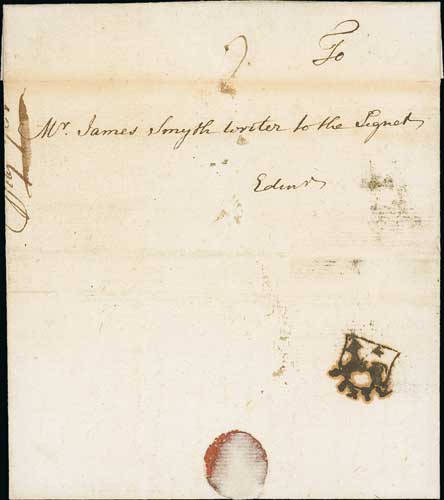 To
Mr. James Smyth writer to the Signet
Edinr